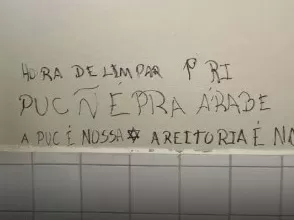 HORA DE LIMPAR P RI
PUC Ñ É PRA ÁRABE
A PUC É NOSSA ✡ A REITORIA É